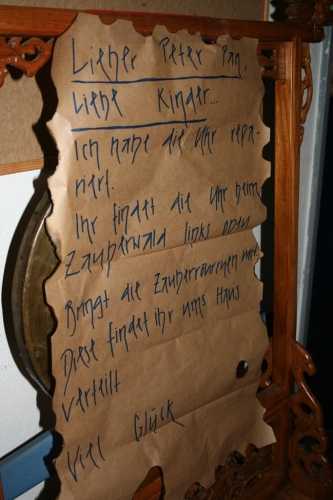 Lieber Peter Pan,
Liebe Kinder...
Ich habe die Uhr repa-
riert.
Ihr findet die Uhr beim
Zauberwald links oben.
Bringt die Zauberröhrchen mit.
Diese findet ihr ums Haus
verteilt
Viel Glück